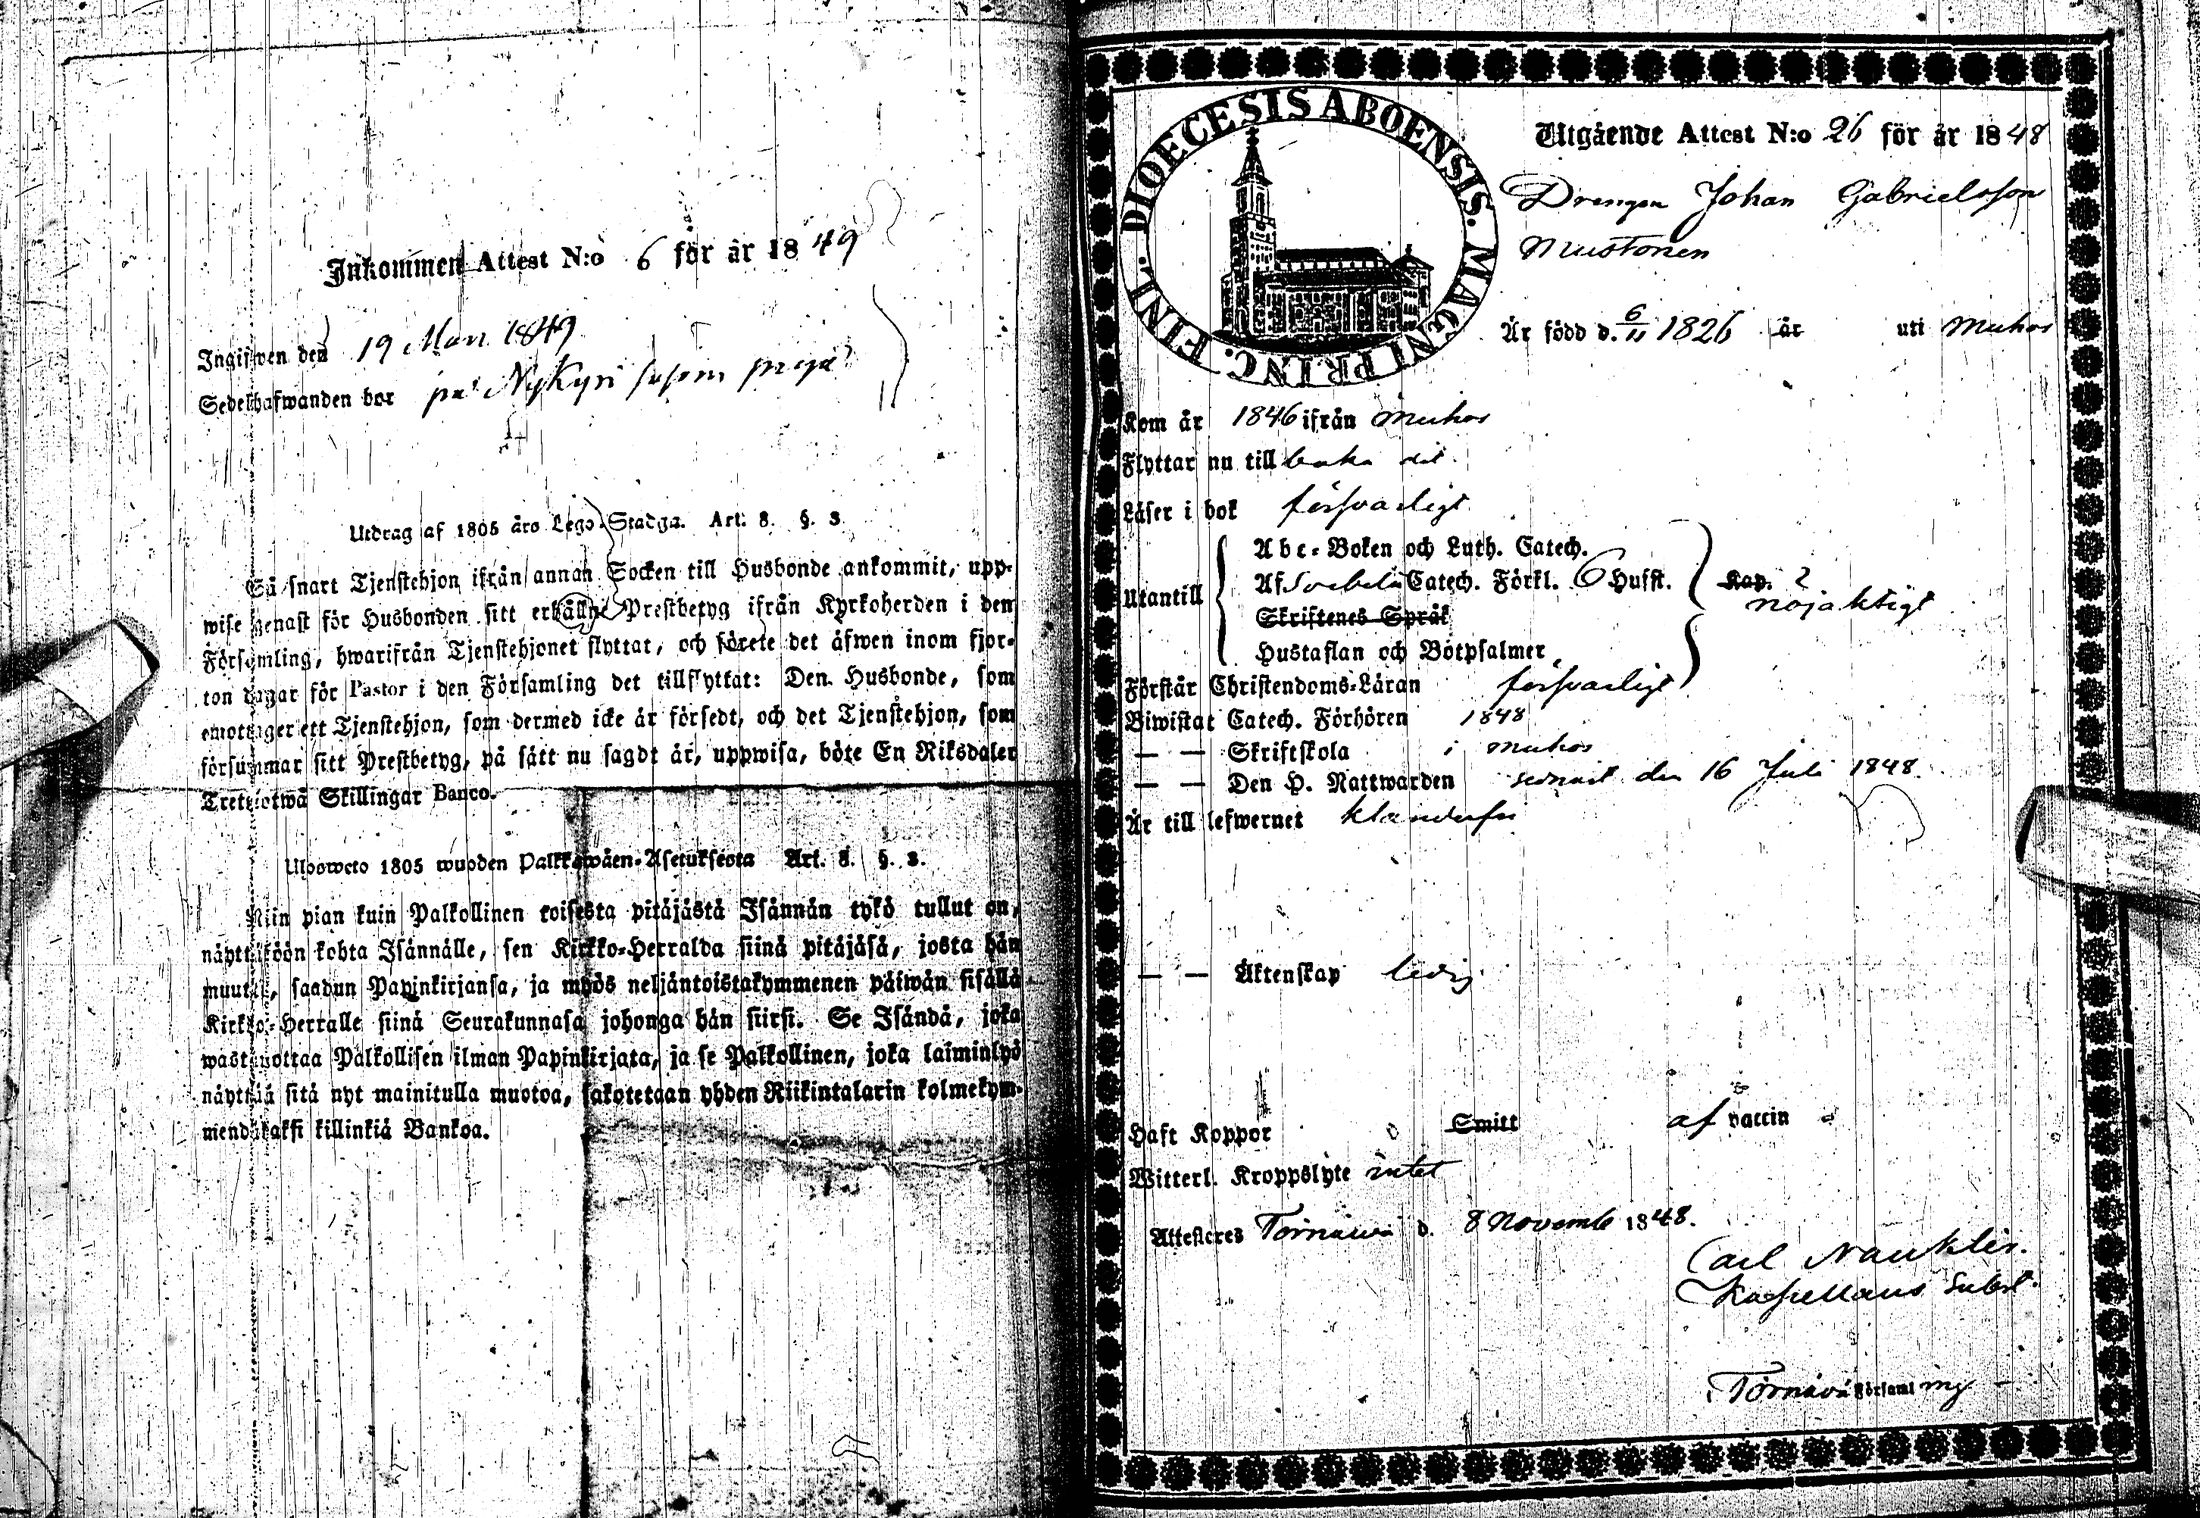 Inkommen Attest N:o 6 för år 1849
Ingifwen den 19 Mars 1849
Sedelhafwanden bor på Nykyri såsom
Utdrag af 1805 års Lego-Stadga. Art. 8. §. 3.
Så snart Tjenstehjon ifrån annan Socken till Husbonde ankommit, upp-
wise genast för Husbonden sitt erhållne Prestbetyg ifrån Kyrkoherden i den
Församling, hwarifrån Tjenstehjonet flyttat, och förete det äfwen inom fjor-
ton dagar för Pastor i den Församling det tillflyttat: Den Husbonde, som
emottager ett Tjenstehjon, som dermed icke är försedt, och det Tjenstehjon, som
försummar sitt Prestbetyg, på sätt nu sagdt är, uppwisa, böte En Riksdaler
Trettiotwå Skillingar Banco.
Ulosweto 1805 wuoden Palkkawäen-Asetuksesta Art. 8. §. 3.
Niin pian kuin Palkollinen toisesta pitäjästä Isännän tykö tullut on,
näyttäköön kohta Isännälle, sen Kirkko-Herralda siinä pitäjäsä, josta hän
muutti, saadun Papinkirjansa, ja myös neljäntoistakymmenen päiwän sisällä
Kirkko-Herralle siinä Seurakunnasa johonga hän siirsi. Se Isändä, joka
wastanottaa Palkollisen ilman Papinkirjata, ja se Palkollinen, joka laiminlyö
näyttää sitä nyt mainitulla muotoa, sakotetaan yhden Riikintalarin kolmekym-
mendäkaksi killinkiä Bankoa.
DIOECESIS ABOENSIS. MAGNI PRINC. FINL.
Utgående Attest N:o 26 för år 1848
Drengen Johan Gabrielsson
Mustonen
Är född d. 6/11 1826 år uti Muhos
Kom år 1846 ifrån Muhos
Flyttar nu till baka dit
Läser i bok försvarligt
Utantill
Abc-Boken och Luth. Catech.
Af Svebelii Catech. Förkl. 6 Hufst. Kap. 2
Skriftenes Språk
nöjaktigt
Hustaflan och Botpsalmer
Förstår Christendoms-Läran försvarligt
Biwistat Catech. Förhören 1848
— — Skriftskola i Muhos
— — Den H. Nattwarden senast den 16 Juli 1848.
Är till lefwernet klanderfri
— — Äktenskap ledig
Haft Koppor Smitt af vaccin
Witterl. Kroppslyte intet
Attesteres Törnävä d. 8 Novemb 1848.
Carl Nauklér.
Kapellans Subst.
Törnävä Församling